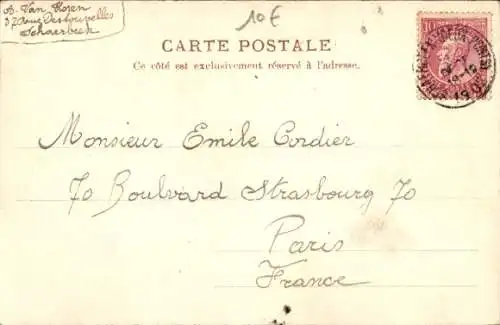 A. Van Rosen
37 Rue Destouvelles
Schaerbeek
10€
CARTE POSTALE
Ce côté est exclusivement réservé à l'adresse.
Monsieur Emile Cordier
70 Boulvard Strasbourg 70
Paris
France